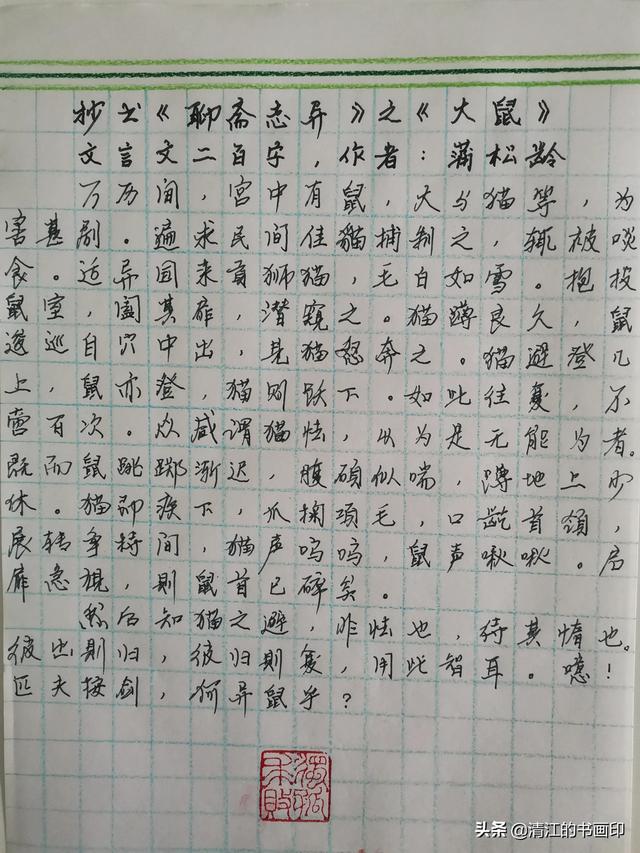 抄书《聊斋志异》之《大鼠》
文言文二百字，作者：蒲松龄
万历间，宫中有鼠，大与猫等，为
害甚剧。遍求民间佳猫捕制之，辄被啖
食。适异国来贡狮猫，毛白如雪。抱投
鼠室，阖其扉，潜窥之。猫蹲良久，鼠
逡巡自穴中出，见猫怒奔之。猫避登几
上，鼠亦登，猫则跃下。如此往复，不
啻百次。众咸谓猫怯，以为是无能为者。
既而鼠跳掷渐迟，腹硕似喘，蹲地上少
休。猫即疾下，爪掬项毛，口龁首领，
展转争持间，猫声呜呜，鼠声啾啾。启
扉急视，则鼠首已碎矣。
然后知猫之避，非怯也，待其惰也。
彼出则归，彼归则复，用此智耳。噫！
匹夫按剑，何异鼠乎？
头条@清江的书画印